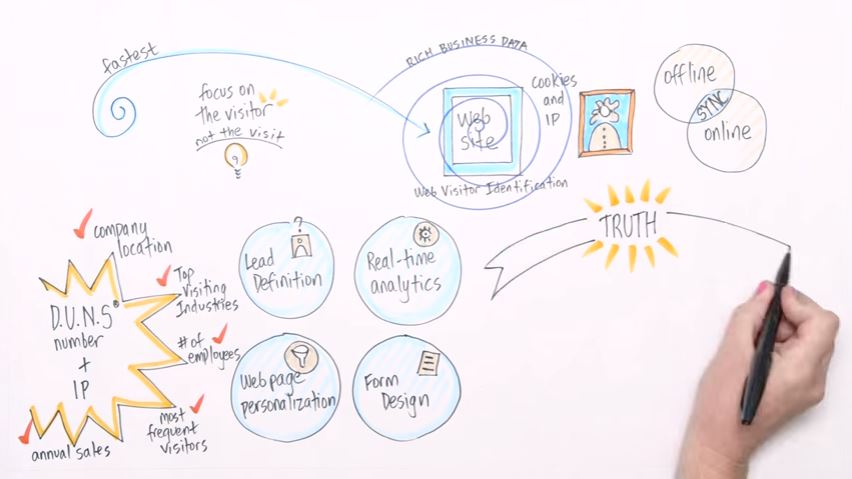 fastest
focus on
the visitor
not the visit
RICH BUSINESS DATA
Web
site
cookies
and
IP
Web Visitor Identification
offline
SYNC
online
company
location
Top
Visiting
Industries
# of
employees
most
frequent
visitors
annual sales
D.U.N.S®
number
+
IP
?
Lead
Definition
Real-time
analytics
Webpage
personalization
Form
Design
TRUTH